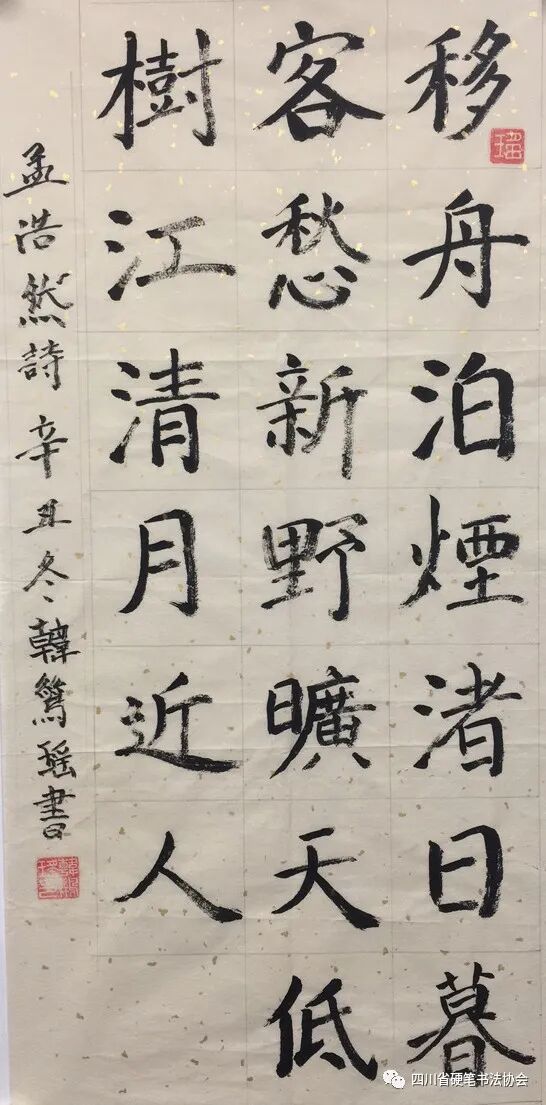 移舟泊煙渚日暮
客愁新野曠天低
樹江清月近人
孟浩然詩辛丑冬韓篤瑶書
瑶
四川省硬笔书法协会